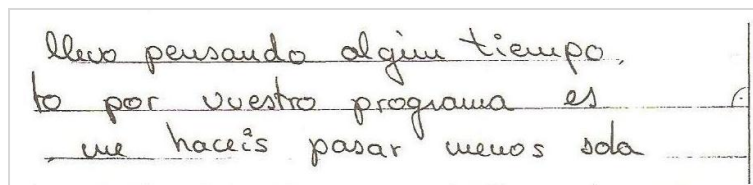 llevo pensando algún tiempo,
to por vuestro programa es
me hacéis pasar menos sola